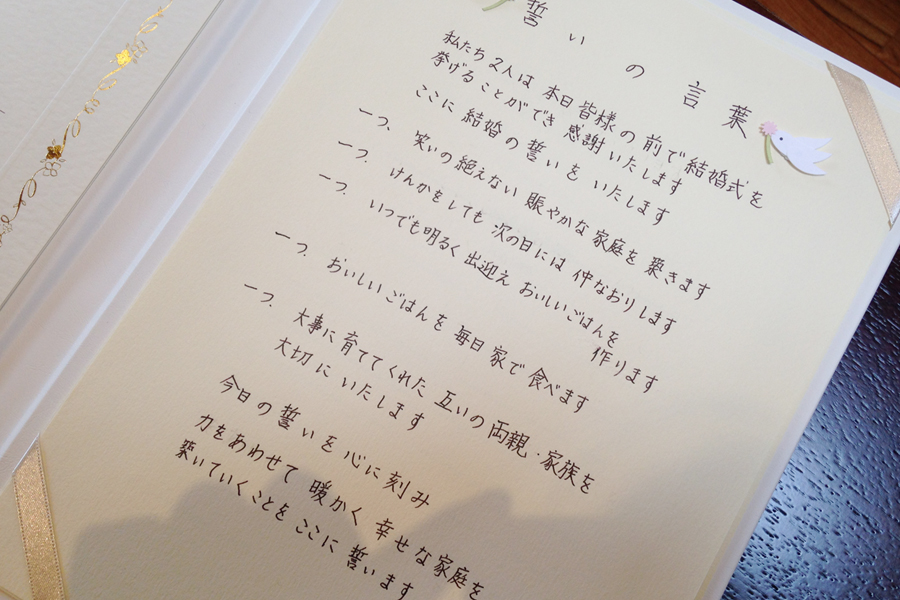 誓いの言葉
私たち2人は 本日 皆様の前で結婚式を
挙げることができ 感謝いたします
ここに 結婚の誓いを いたします
一つ、笑いの絶えない 賑やかな家庭を 築きます
一つ、けんかをしても 次の日には 仲なおりします
一つ、いつでも明るく 出迎え おいしいごはんを
作ります
一つ、おいしいごはんを 毎日 家で 食べます
一つ、大事に育ててくれた 互いの両親・家族を
大切に いたします
今日の誓いを 心に刻み
力をあわせて 暖かく 幸せな家庭を
築いていくことを ここに 誓います